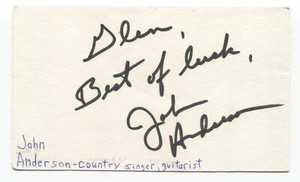 Glen,
Best of luck,
John
Anderson
John
Anderson-Country singer, guitarist